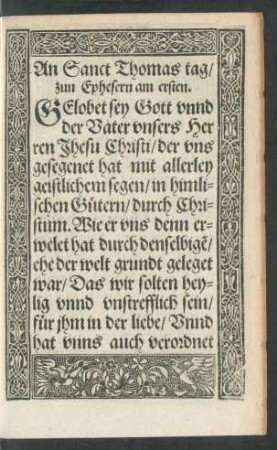 An Sanct Thomas tag/
zun Ephesern am ersten.
GElobet sey Gott vnnd
der Vater vnsers Her
ren Jhesu Christi/ der vns
gesegenet hat mit allerley
geistlichem segen/ in himli-
schen Gütern/ durch Chri-
stum. Wie er vns denn er-
welet hat durch denselbigẽ/
ehe der welt grundt geleget
war/ Das wir solten hey-
lig vnnd vnstrefflich sein/
für jhm in der liebe/ Vnnd
hat vnns auch verordnet